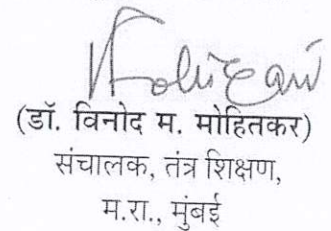 (डॉ. विनोद म. मोहितकर)
संचालक, तंत्र शिक्षण,
म.रा., मुंबई